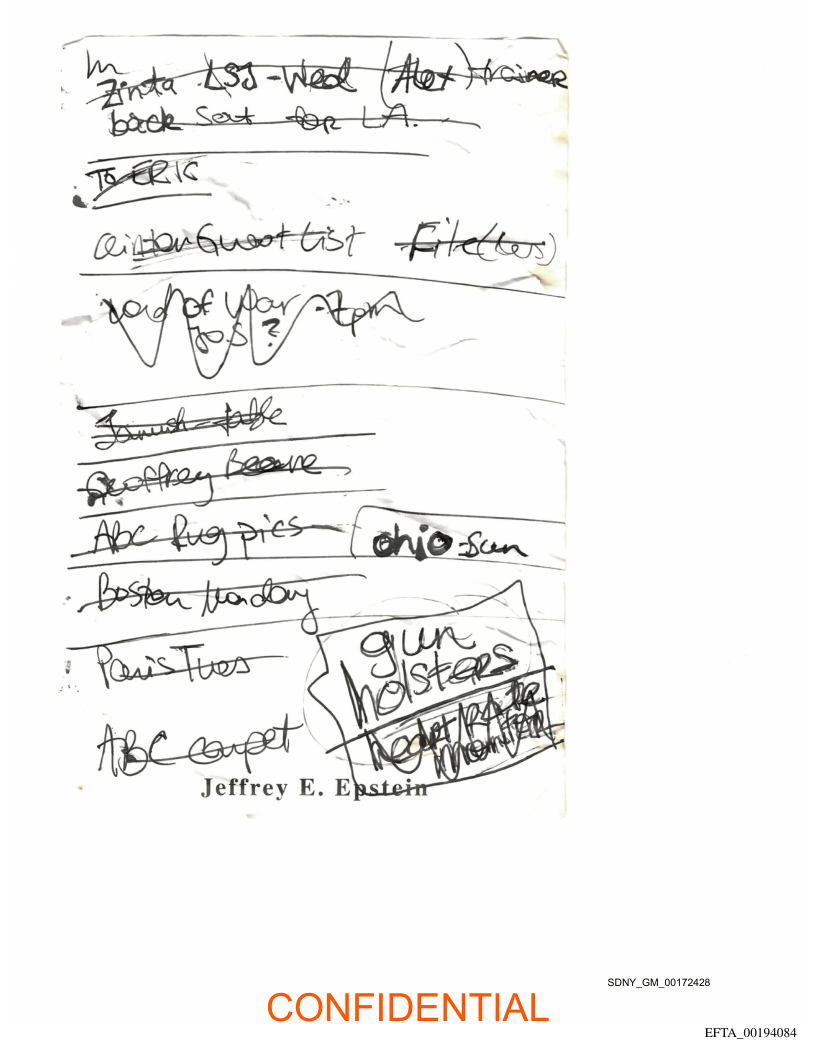 Zinta LSJ-Wed (Alex) trainer
back Seat for L.A.
To ERIC
Clinton Guest List File(les)
Lord of War - 7pm
Jo.S ?
Geoffrey Beene
Abc Rug pics
Ohio - Sun
Boston Monday
Paris Tues
gun
holsters
heart RATE
monitor
ABC carpet
Jeffrey E. Epstein
SDNY_GM_00172428
CONFIDENTIAL
EFTA_00194084